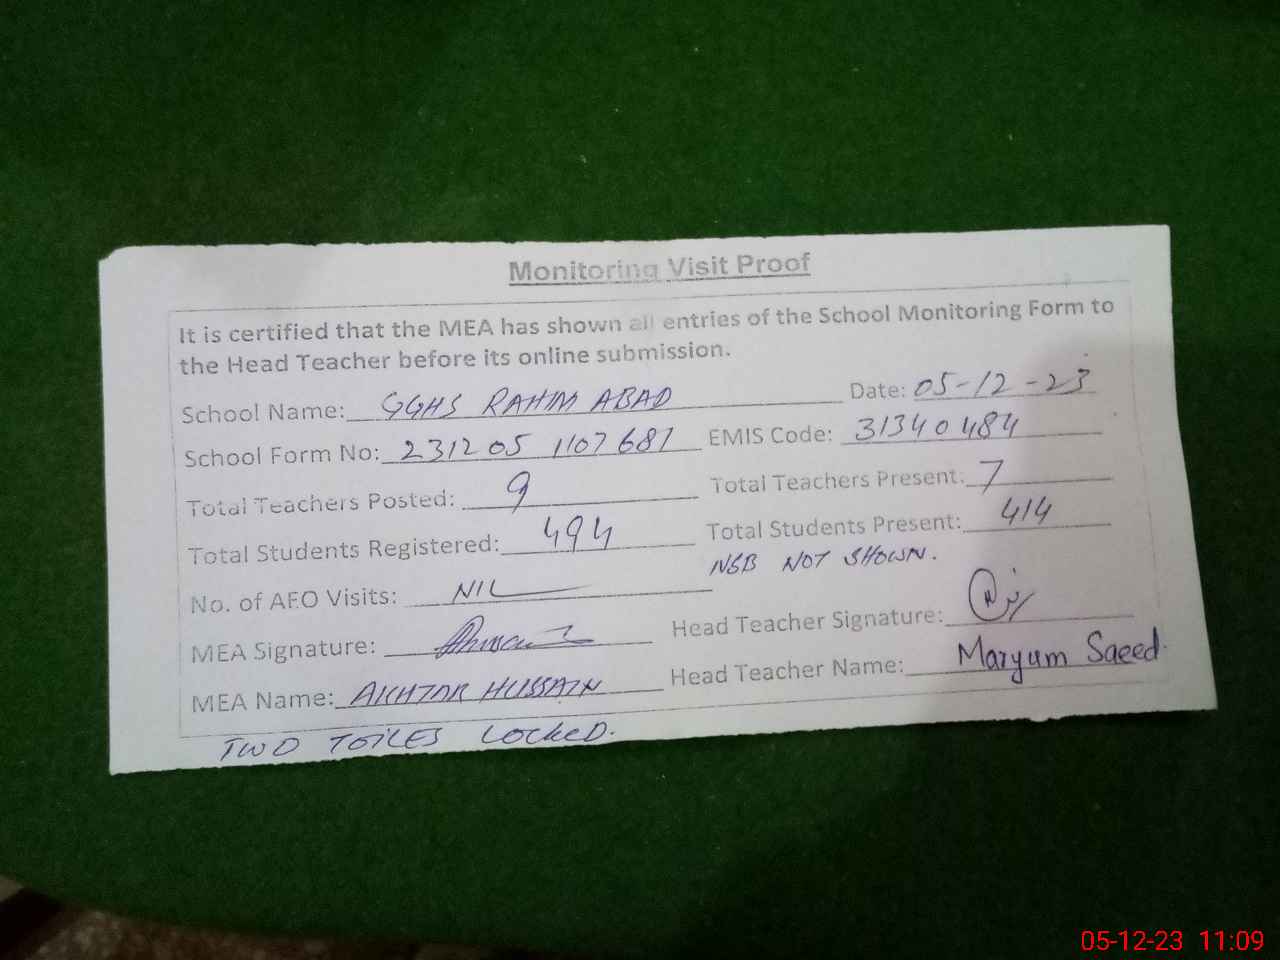 Monitoring Visit Proof
It is certified that the MEA has shown all entries of the School Monitoring Form to
the Head Teacher before its online submission.
School Name: GGHS RAHIM ABAD Date: 05-12-23
School Form No: 231205 1107681 EMIS Code: 31340484
Total Teachers Posted: 9 Total Teachers Present: 7
Total Students Registered: 494 Total Students Present: 414
NSB NOT SHOWN.
No. of AEO Visits: NIL
MEA Signature: Head Teacher Signature:
MEA Name: AKHTAR HUSSAIN Head Teacher Name: Maryum Saeed
TWO TOILES LOCKED.
05-12-23 11:09